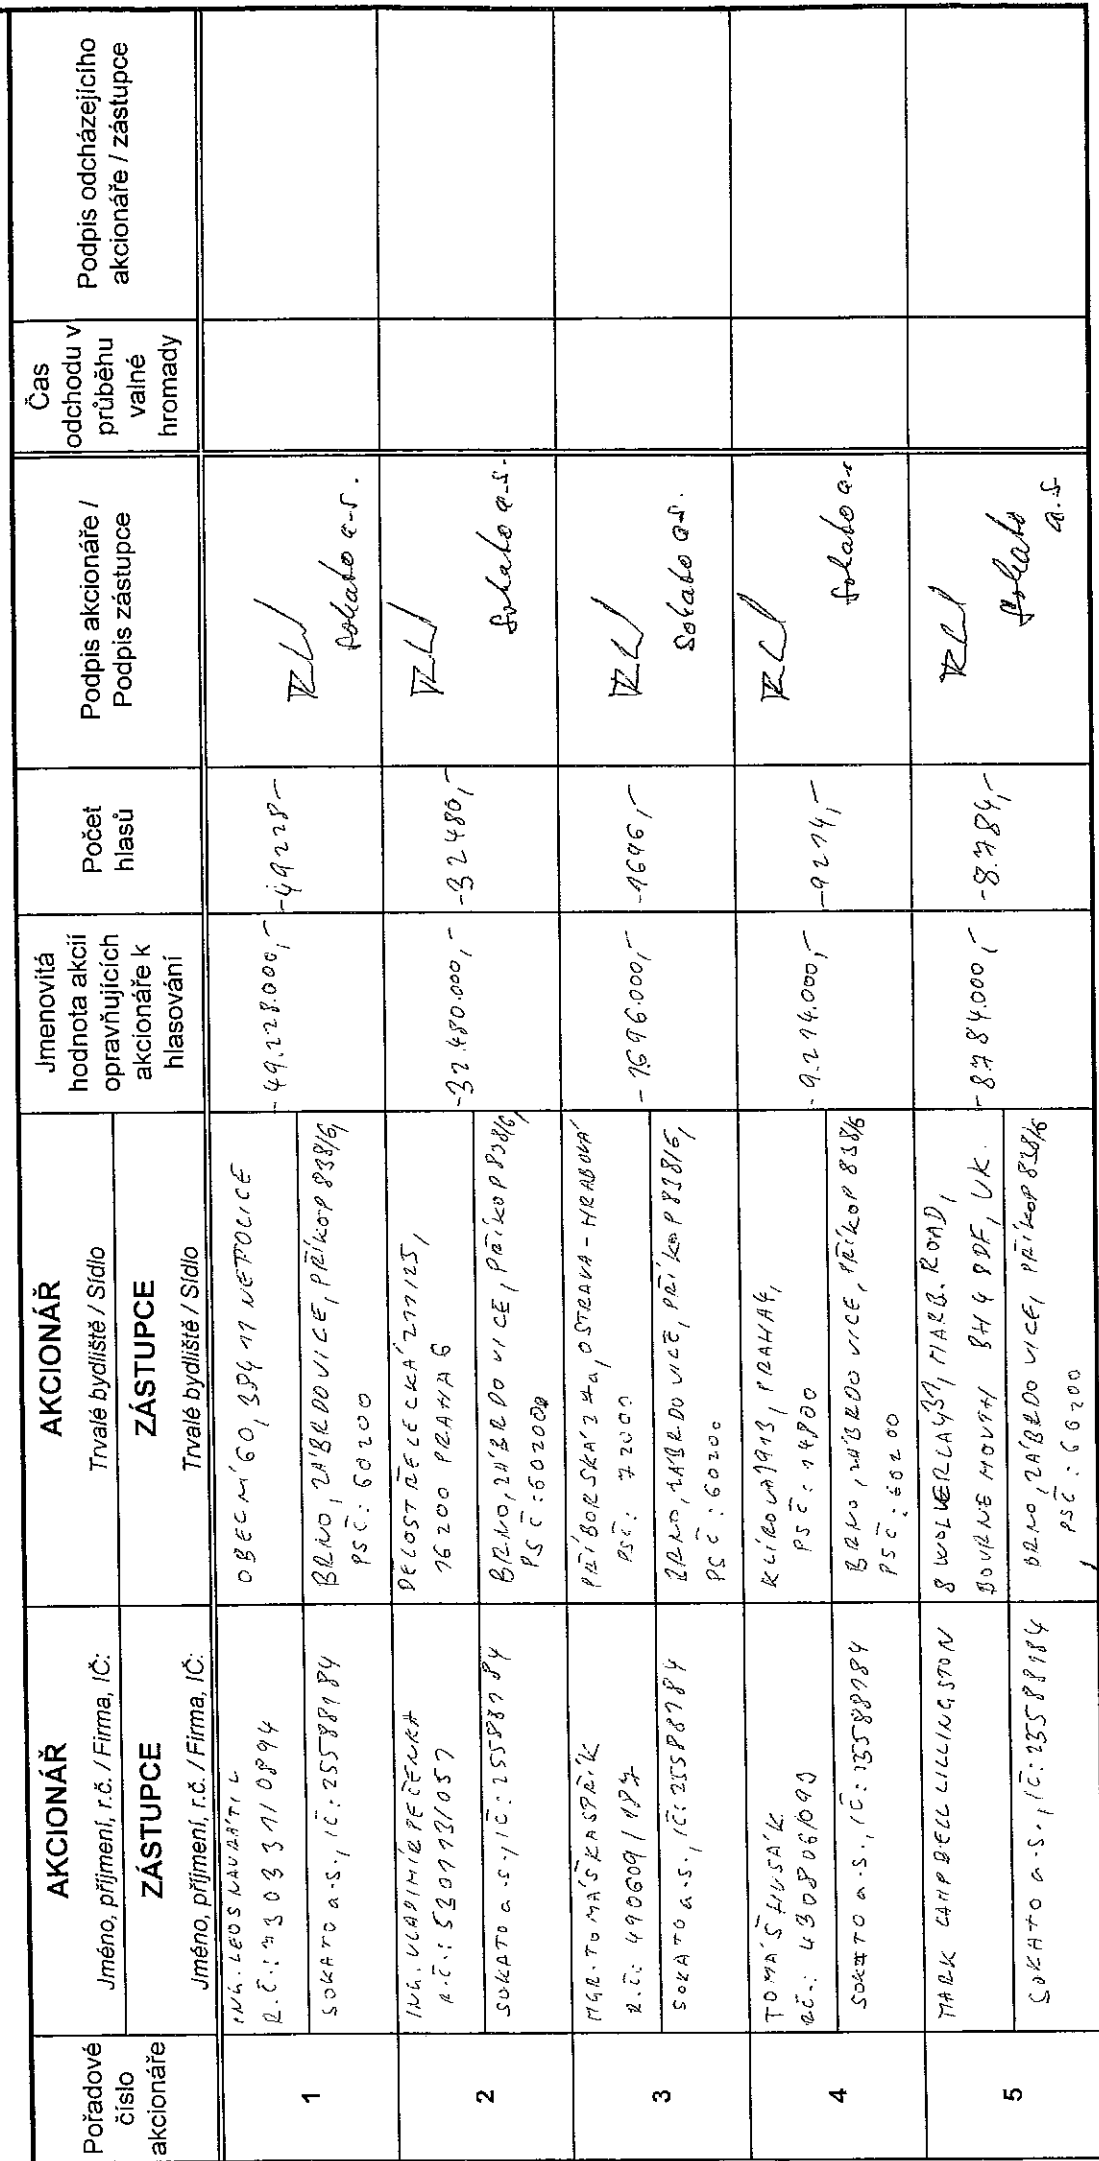 Pořadové
číslo
akcionáře
AKCIONÁŘ
Jméno, příjmení, r.č. / Firma, IČ:
ZÁSTUPCE
Jméno, příjmení, r.č. / Firma, IČ:
AKCIONÁŘ
Trvalé bydliště / Sídlo
ZÁSTUPCE
Trvalé bydliště / Sídlo
Jmenovitá
hodnota akcií
opravňujících
akcionáře k
hlasování
Počet
hlasů
Podpis akcionáře /
Podpis zástupce
Čas
odchodu v
průběhu
valné
hromady
Podpis odcházejícího
akcionáře / zástupce
1
ING. LEOS NAVRÁTIL
R.Č.: 730331/0894
OBECNÍ 60, 38411 NETOLICE
-49.228.000,-
-49228-
SOKATO a.s., IČ: 25588184
BRNO, ZÁBRDOVICE, PŘÍKOP 838/6,
PSČ: 60200
Sokato a.s.
2
ING. VLADIMÍR PEČENKA
R.Č.: 530113/057
DELOSTŘELECKÁ 277/25,
16200 PRAHA 6
-32.480.000,-
-32480,-
SOKATO a.s., IČ: 25588184
BRNO, ZÁBRDOVICE, PŘÍKOP 838/6,
PSČ: 60200
Sokato a.s.
3
MGR. TOMÁŠ KAŠPŘÍK
R.Č.: 490609/187
PŘÍBORSKÁ, OSTRAVA - HRABOVÁ
PSČ:
-1.696.000,-
-1696,-
SOKATO a.s., IČ: 25588184
BRNO, ZÁBRDOVICE, PŘÍKOP 838/6,
PSČ: 60200
Sokato a.s.
4
TOMÁŠ HUSÁK
RČ.: 430806/090
KLÍROVA 1913, PRAHA 4,
PSČ: 14800
-9.214.000,-
-9214,-
SOKATO a.s., IČ: 25588184
BRNO, ZÁBRDOVICE, PŘÍKOP 838/6
PSČ: 60200
Sokato a.s.
5
MARK CAMPBELL LILLINGSTON
8 WOLVERLAY, MARB. ROAD,
BOURNEMOUTH BH4 8DF, UK.
-8784.000,-
-8.784,-
SOKATO a.s., IČ: 25588184
BRNO, ZÁBRDOVICE, PŘÍKOP 838/6
, PSČ: 60200
Sokato
a.s